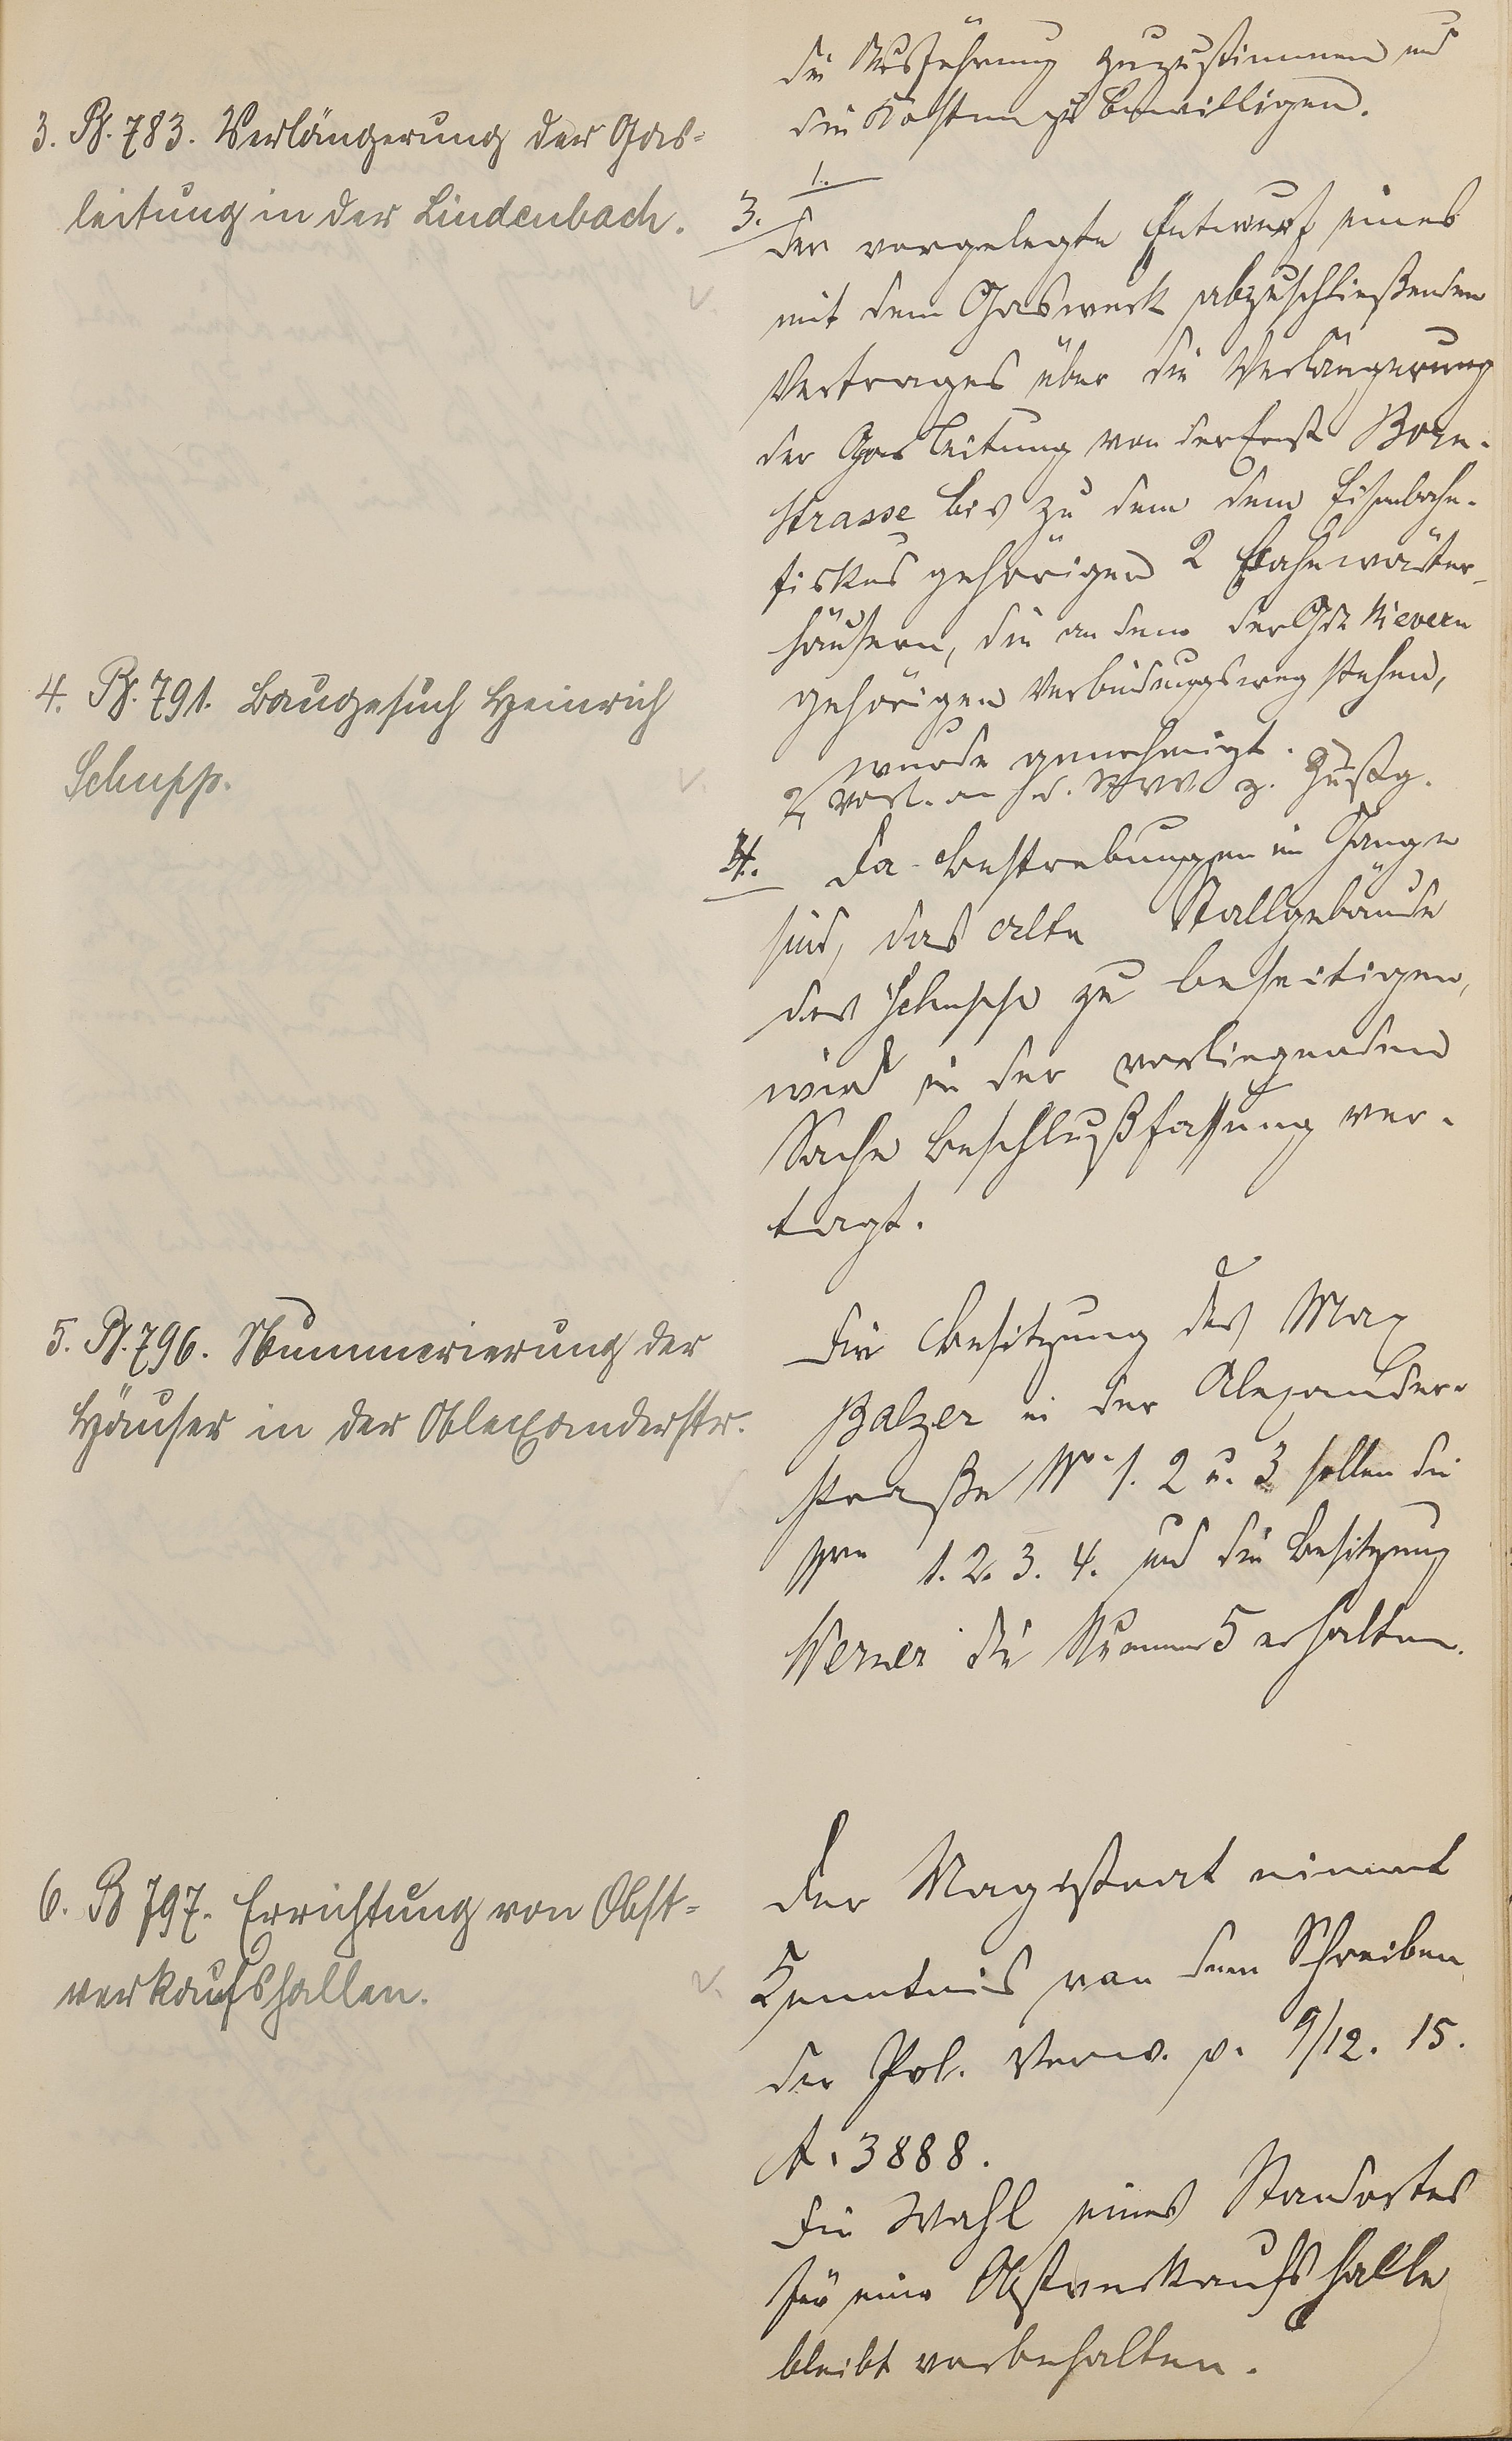 die Ausführung zuzustimmen und
die Kosten zu bewilligen.
3. B. 783. Verlängerung der Gas-
leitung in der Lindenbach.
3. 1.
Der vorgelegte Entwurf eines
mit dem Gaswerk abzuschließenden
Vertrages über die Verlängerung
der Gasleitung von der Ernst Born-
strasse bis zu dem dem Eisenbahn-
fiskus gehörigen 2 Bahnwärter-
häusern, die an dem der Gde Nievern
gehörigen Verbindungsweg stehen,
wurde genehmigt.
2, Vorl. an d. StVV z. Zustg.
4. B. 791. Baugesuch Heinrich
Schupp.
4. Da Bestrebungen im Gange
sind, das alte Stallgebäude
des Schupp zu beseitigen,
wird in der vorliegenden
Sache Beschlußfassung ver-
tagt.
5. B. 796. Nummerierung der
Häuser in der Alexanderstr.
Die Besitzung des Max
Balzer in der Alexander-
straße No. 1. 2 u. 3 sollen die
Nrn 1. 2. 3. 4. und die Besitzung
Werner die Nummer 5 erhalten.
6. B 797. Errichtung von Obst-
verkaufshallen.
Der Magistrat nimmt
Kenntnis von dem Schreiben
der Pol. Verw. v. 9/12. 15.
A. 3888.
Die Wahl eines Standortes
für eine Obstverkaufshalle
bleibt vorbehalten.